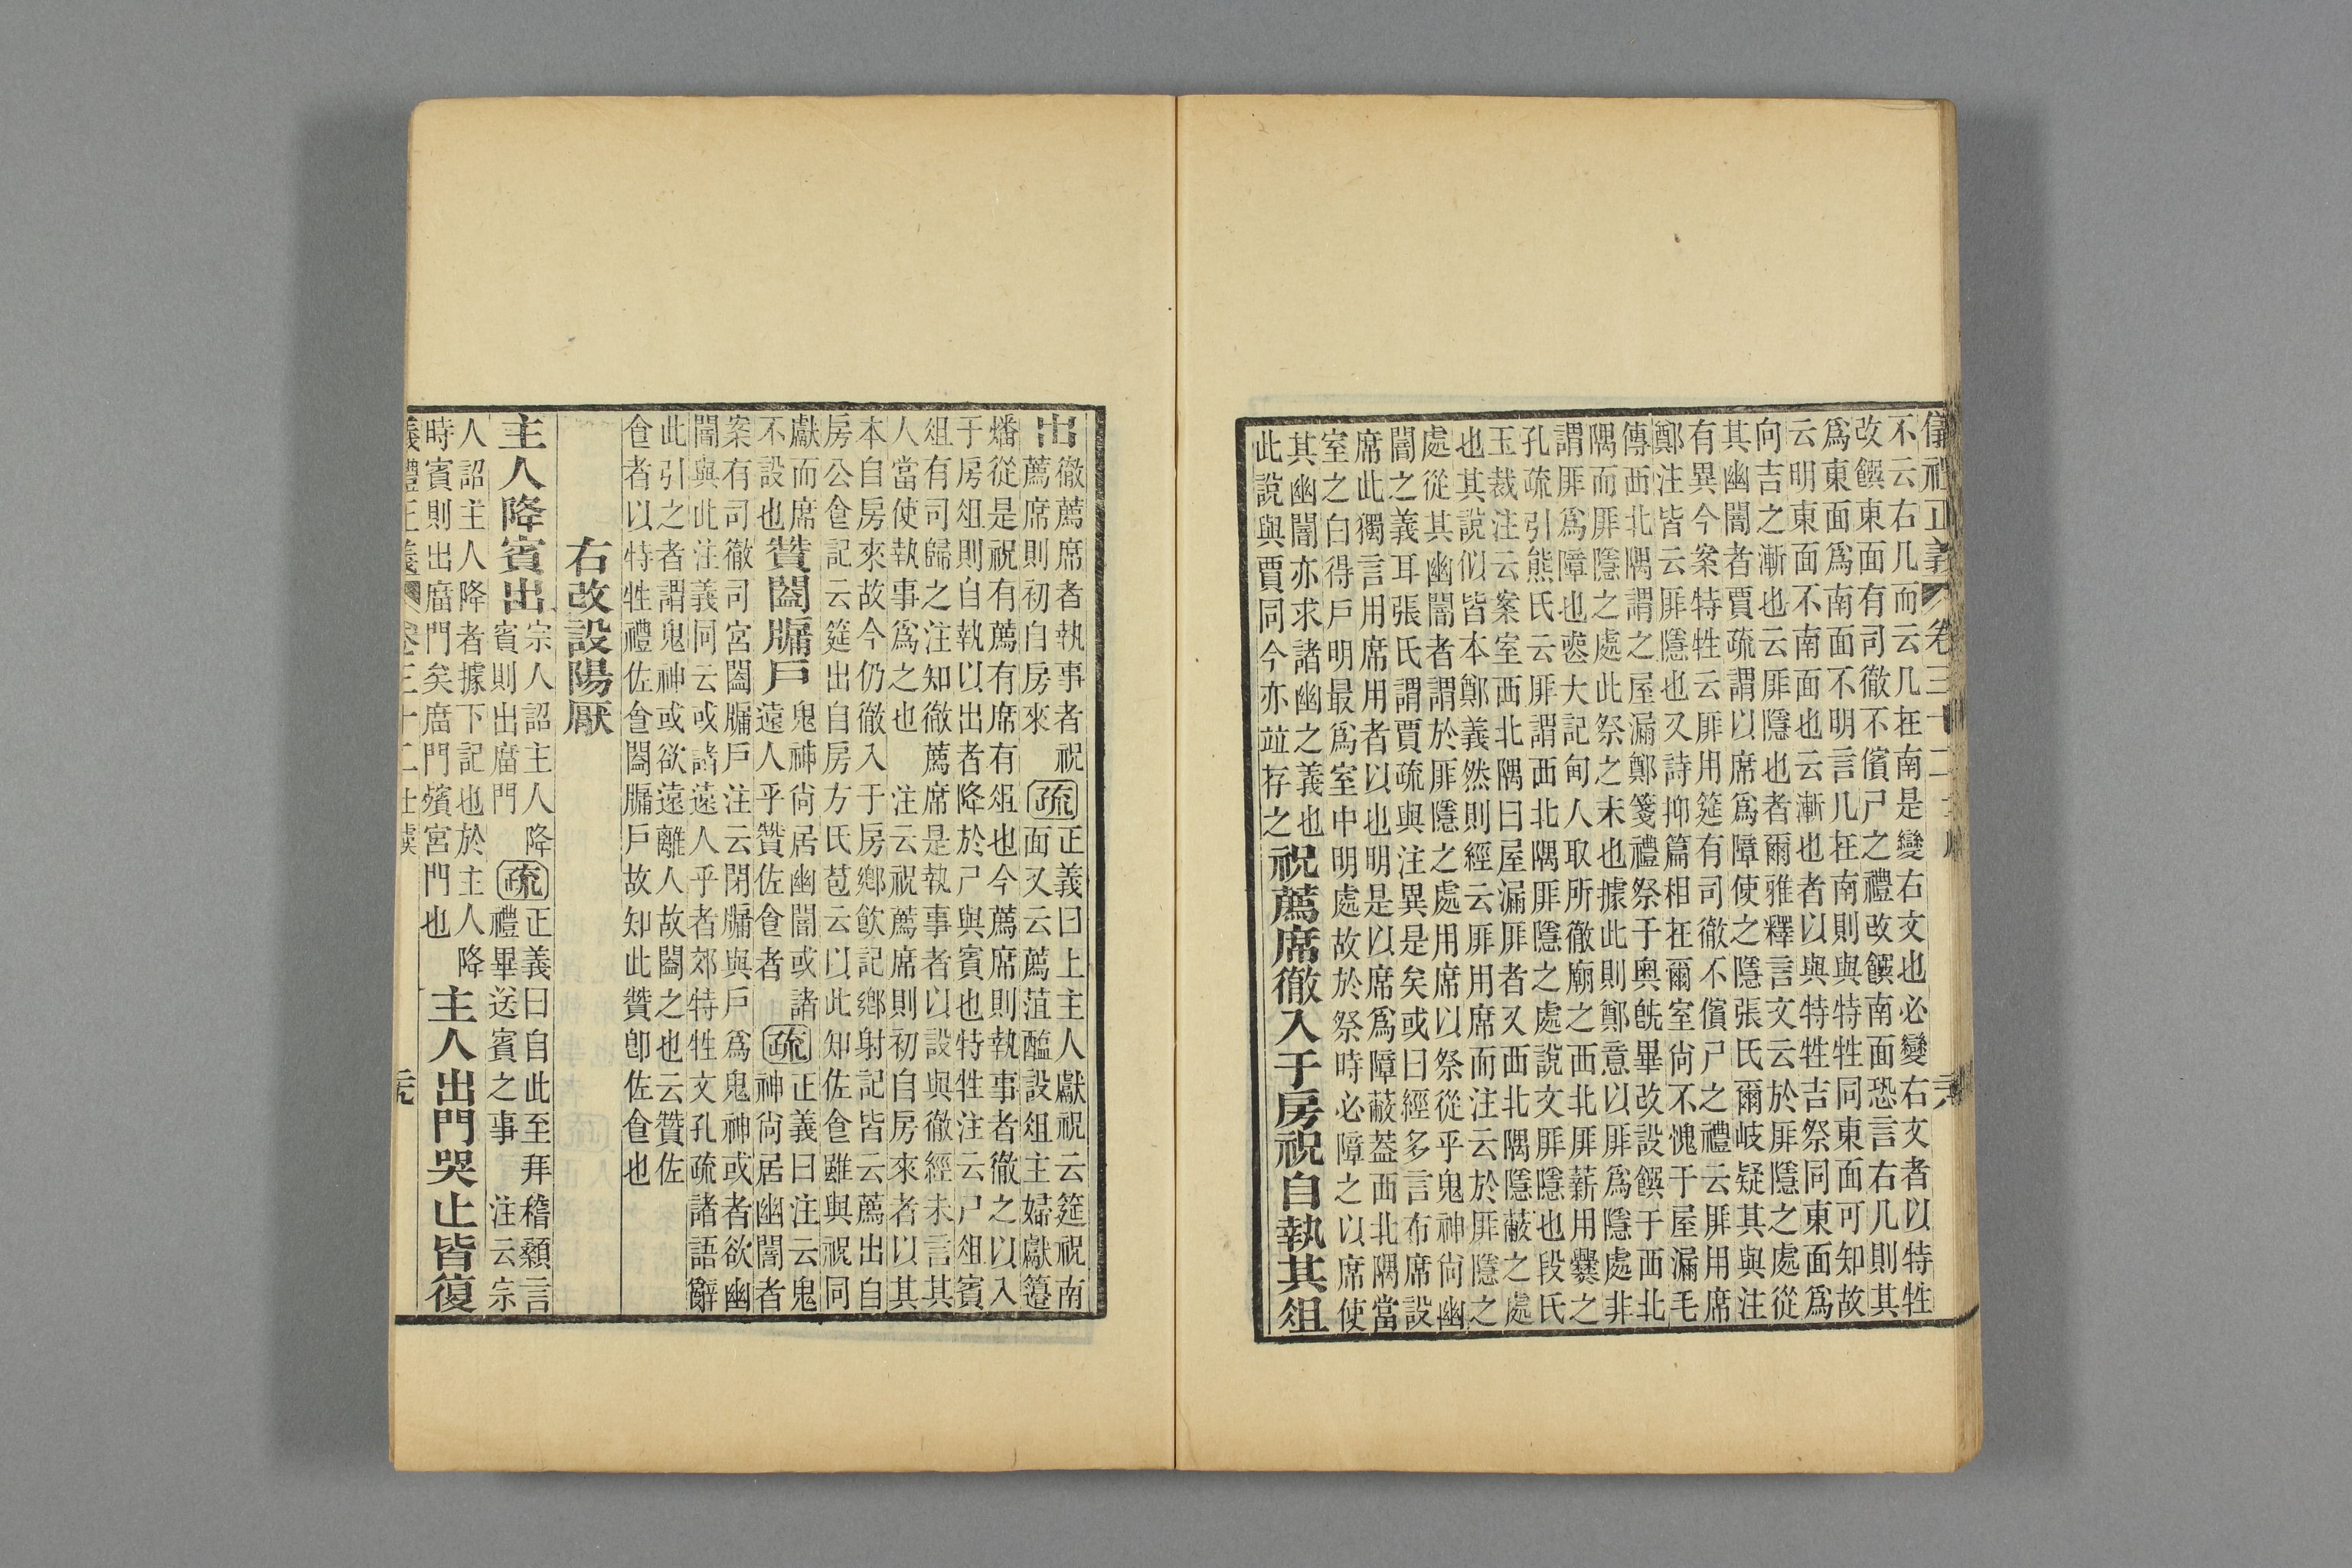 儀禮正義 卷三十二 士虞
不云右几而云几在南是變右文也必變右文者以特牲
改饌東面有司徹不儐尸之禮改饌南面恐言右几則其
爲東面爲南面不明言几在南則與特牲同東面可知故
云明東面不南面也云漸也者以與特牲吉祭同東面爲
向吉之漸也云厞隱也者爾雅釋言文云於厞隱之處從
其幽闇者賈疏謂以席爲障使之隱張氏爾岐疑其與注
有異今案特牲云厞用筵有司徹不儐尸之禮云厞用席
鄭注皆云厞隱也又詩抑篇相在爾室尚不愧于屋漏毛
傳西北隅謂之屋漏鄭箋禮祭于奧旣畢改設饌于西北
隅而厞隱之處此祭之末也據此則鄭意以厞爲隱處非
謂厞爲障也喪大記甸人取所徹廟之西北厞薪用爨之
孔疏引熊氏云厞謂西北隅厞隱之處說文厞隱也段氏
玉裁注云案室西北隅曰屋漏厞者又西北隅隱蔽之處
也其說似皆本鄭義然則經云厞用席而注云於厞隱之
處從其幽闇者謂於厞隱之處用席以祭從乎鬼神尚幽
闇之義耳張氏謂賈疏與注異是矣或曰經多言布席設
席此獨言用席用者以也明是以席爲障蔽葢西北隅當
室之白得戶明最爲室中明處故於祭時必障之以席使
其幽闇亦求諸幽之義也
此說與賈同今亦竝存之
祝薦席徹入于房祝自執其俎
出
徹薦席者執事者祝
薦席則初自房來
疏
正義曰上主人獻祝云筵祝南
面又云薦菹醢設俎主婦獻籩
燔從是祝有薦有席有俎也今薦席則執事者徹之以入
于房俎則自執以出者降於尸與賓也特牲注云尸俎賓
俎有司歸之注知徹薦席是執事者以設與徹經未言其
人當使執事爲之也 注云祝薦席則初自房來者以其
本自房來故今仍徹入于房鄉飮記鄉射記皆云薦出自
房公食記云筵出自房方氏苞云以此知佐食雖與祝同
獻而席
不設也
贊闔牖戶
鬼神尚居幽闇或諸
遠人乎贊佐食者
疏
正義曰注云鬼
神尚居幽闇者
案有司徹司宮闔牖戶注云閉牖與戶爲鬼神或者欲幽
闇與此注義同云或諸遠人乎者郊特牲文孔疏諸語辭
此引之者謂鬼神或欲遠離人故闔之也云贊佐
食者以特牲禮佐食闔牖戶故知此贊卽佐食也
右改設陽厭
主人降賓出
宗人詔主人降
賓則出廟門
疏
正義曰自此至拜稽顙言
禮畢送賓之事 注云宗
人詔主人降者據下記也於主人降
時賓則出廟門矣廟門殯宮門也
主人出門哭止皆復
儀禮正義 卷三十二 士虞